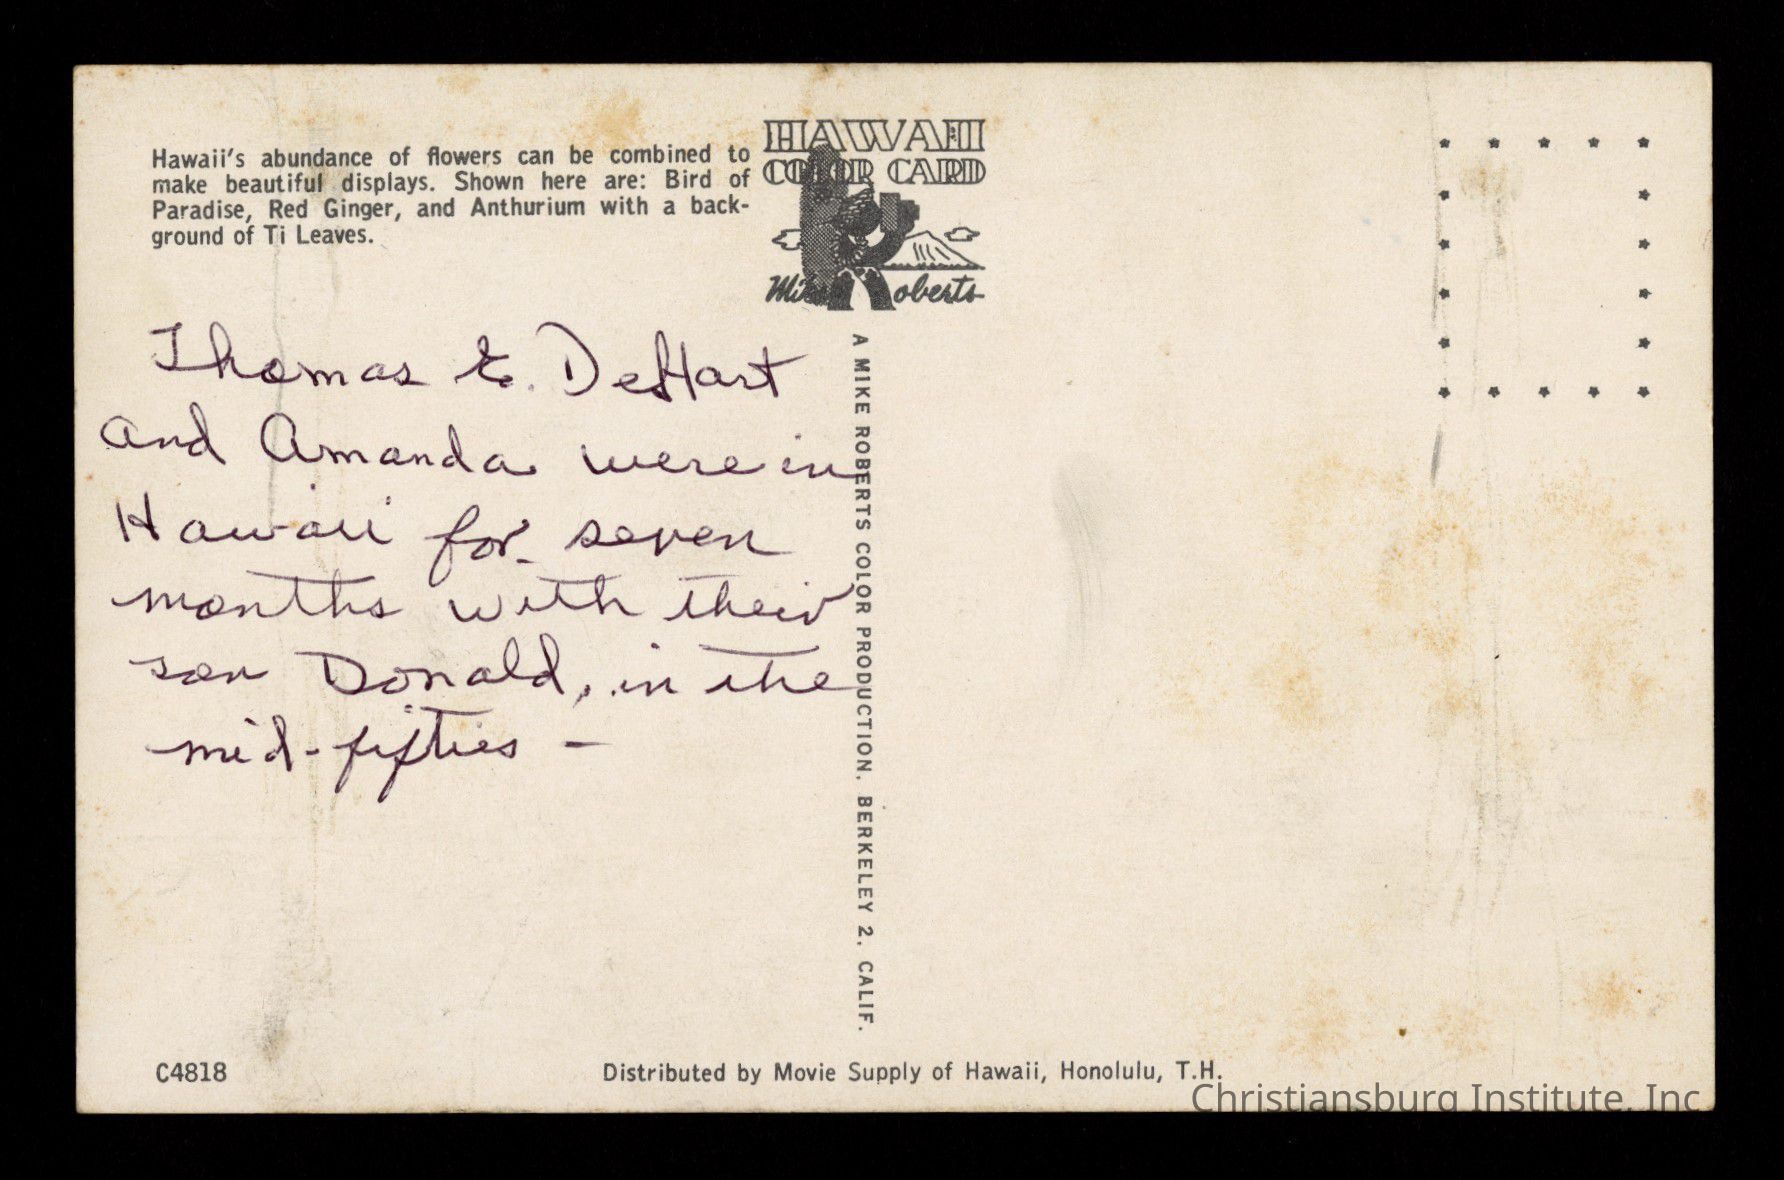 Hawaii's abundance of flowers can be combined to
make beautiful displays. Shown here are: Bird of
Paradise, Red Ginger, and Anthurium with a back-
ground of Ti Leaves.
HAWAII
COLOR CARD
Mike Roberts
Thomas E. DeHart
and Amanda were in
Hawaii for seven
months with their
son Donald, in the
mid-fifties -
A MIKE ROBERTS COLOR PRODUCTION. BERKELEY 2. CALIF.
C4818
Distributed by Movie Supply of Hawaii, Honolulu, T.H.
Christiansburg Institute, Inc